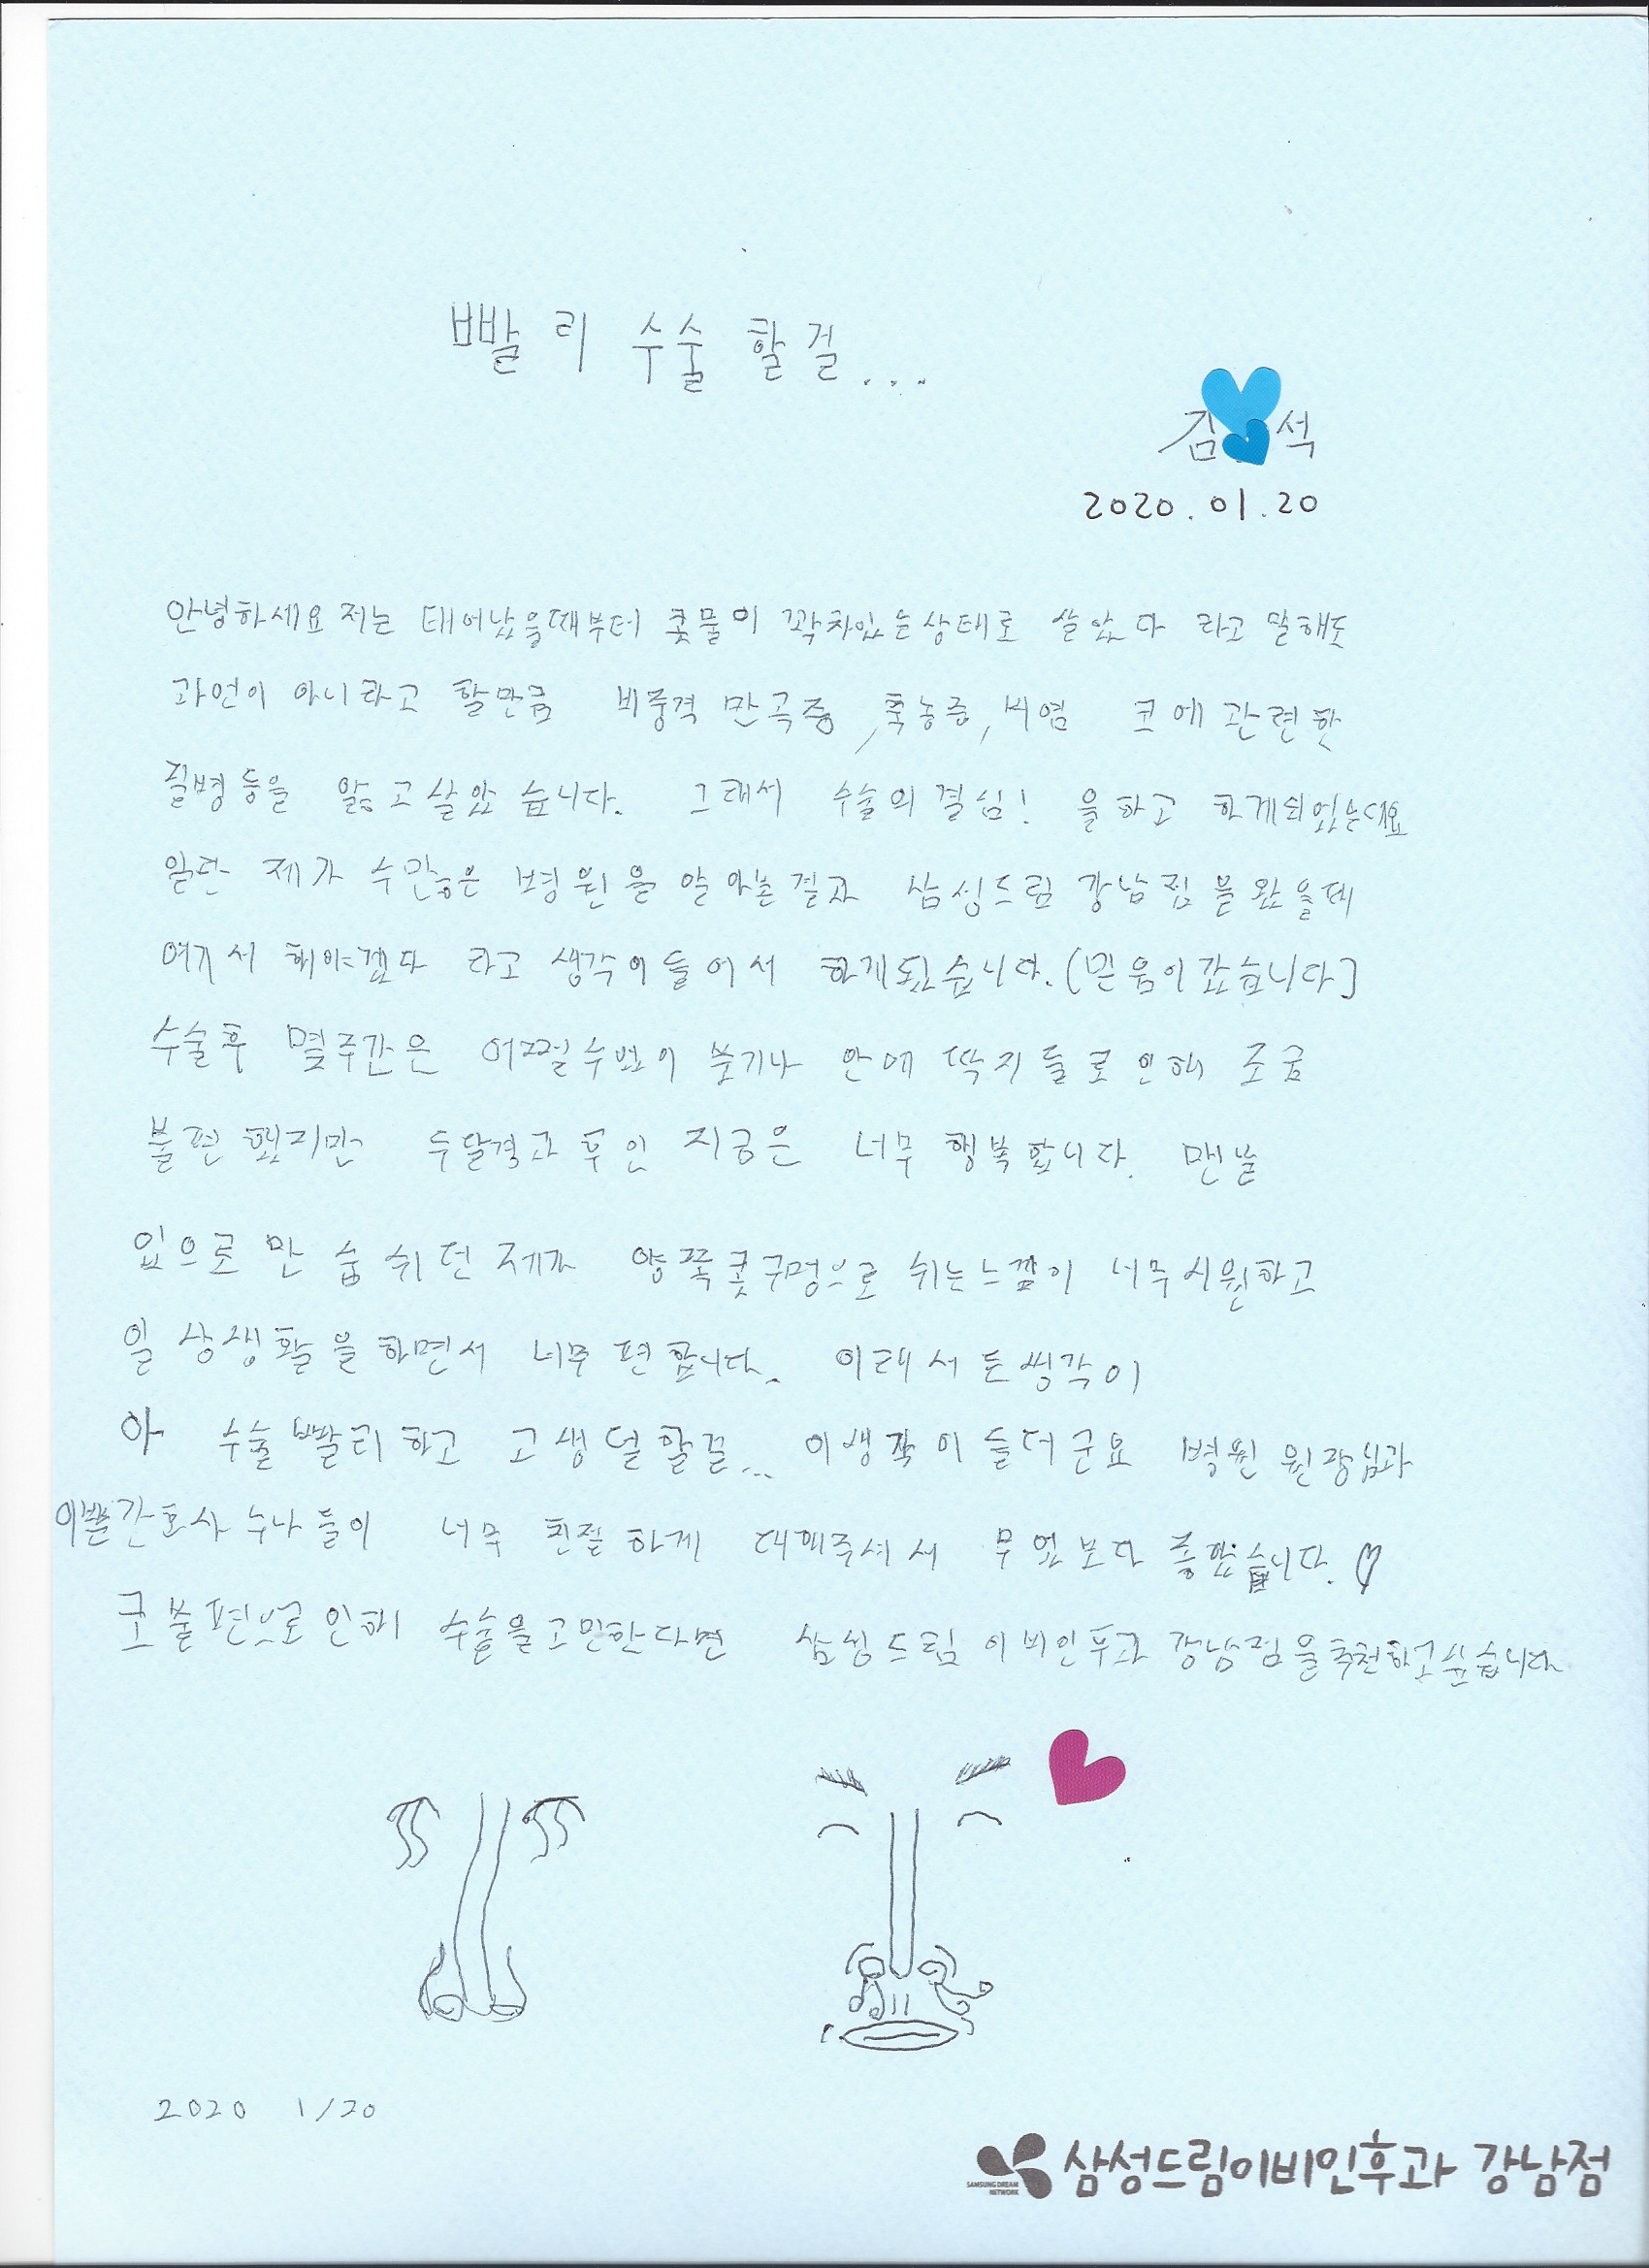 빨리 수술 할걸...
김 석
2020.01.20
안녕하세요 저는 태어났을때부터 콧물이 꽉차있는상태로 살았다 라고 말해도
과언이 아니라고 할만큼 비중격 만곡증, 축농증, 비염 코에 관련한
질병 등을 앓고살았습니다. 그래서 수술의결심! 을하고 하게되었는데요
일단 제가 수많은 병원을 알아본결과 삼성드림 강남점을왔을때
여기서 해야겠다 라고 생각이들어서 하게됐습니다.(믿음이갔습니다)
수술후 몇주간은 어쩔수없이 붓기나 안에 딱지들로인해 조금
불편했지만 두달경과후인 지금은 너무 행복합니다. 맨날
입으로만 숨쉬던 제가 양쪽콧구멍으로 쉬는느낌이 너무시원하고
일상생활을하면서 너무편합니다. 이래서 든생각이
아 수술빨리하고 고생덜할걸... 이생각이들더군요 병원 원장님과
이쁜간호사누나들이 너무 친절하게 대해주셔서 무엇보다 좋았습니다.♡
코불편으로인해 수술을고민한다면 삼성드림이비인후과 강남점을추천하고싶습니다
2020 1/20
삼성드림이비인후과 강남점
SAMSUNG DREAM
NETWORK